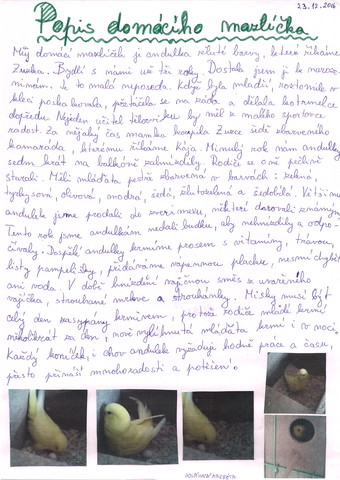 23.12.2016
Popis domácího mazlíčka
Můj domácí mazlíček je andulka žluté barvy, které říkáme
Zuzka. Bydlí s námi už tři roky. Dostala jsem ji k naroze-
ninám. Je to malá neposeda. Když byla mladší, roztomile v
kleci poskakovala, přetáčela se na záda a dělala kotrmelce
dopředu. Nejeden učitel tělocviku by měl z malého sportovce
radost. Za nějaký čas mamka koupila Zuzce šedě zbarveného
kamaráda, kterému říkáme Kája. Minulý rok nám andulky
sedm krát na balkóně zahnízdily. Rodiče se o ně pečlivě
starali. Měli mláďata pestře zbarvená v barvách: zelená,
tyrkysová, olivová, modrá, šedá, žlutozelená a šedobílá. Většinu
andulek jsme prodali do zverimexu, některé darovali známým.
Tento rok jsme andulkám nedali budku, aby nehnízdily a odpo-
čívaly. Dospělé andulky krmíme prosem s vitamíny, trávou,
listy pampelišky, přidáváme vápennou plachu, nesmí chybět
ani voda. V době hnízdění vaječnou směs z uvařeného
vajíčka, strouhané mrkve a strouhanky. Misky musí být
celý den zasypány krmivem, protože rodiče mládě krmí
několikrát za den, nově vylíhnutá mláďata krmí i v noci.
Každý koníček, i chov andulek vyžaduje hodně práce a času,
přesto přináší mnoho radosti a potěšení.